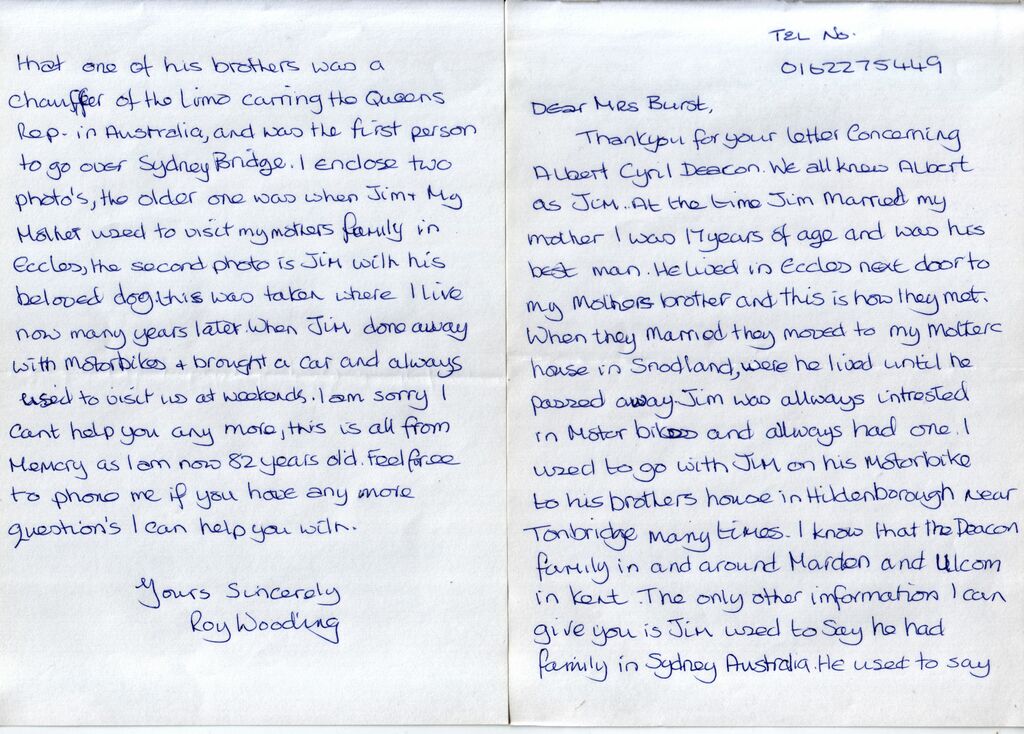 TEL No.
01622275449
Dear Mrs Burst,
Thankyou for your letter Concerning
Albert Cyril Deacon. We all knew Albert
as Jim. At the time Jim Married my
mother I was 17 years of age and was his
best man. He lived in Eccles next door to
my Mothers brother and this is how they met.
When they Married they moved to my Mothers
house in Snodland, were he lived until he
passed away. Jim was allways intrested
in Motor bikes and allways had one. I
used to go with Jim on his Motorbike
to his brothers house in Hildenborough Near
Tonbridge many times. I know that the Deacon
family in and around Marden and Ulcom
in Kent. The only other information I can
give you is Jim used to Say he had
family in Sydney Australia. He used to say
that one of his brothers was a
chauffer of the Limo carring the Queens
Rep. in Australia, and was the first person
to go over Sydney Bridge. I enclose two
photo's, the older one was when Jim + My
Mother used to visit my mothers family in
Eccles, the second photo is Jim with his
beloved dog. this was taken where I live
now many years later. When Jim done away
with Motorbikes + brought a car and always
used to visit us at weekends. I am sorry I
Cant help you any more, this is all from
Memory as I am now 82 years old. Feel free
to phone me if you have any more
question's I can help you with.
Yours Sincerely
Roy Wooding